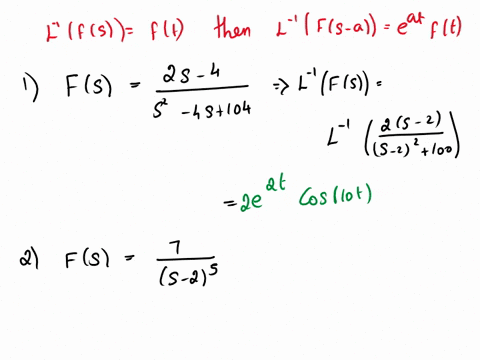 L⁻¹(f(s)) = f(t) then L⁻¹(F(s-a)) = e^{at} f(t)
1) F(s) = \frac{2s-4}{s^2-4s+104} ⇒ L⁻¹(F(s)) =
L⁻¹(\frac{2(s-2)}{(s-2)^2+100})
= 2e^{2t} Cos(10t)
2) F(s) = \frac{7}{(s-2)^5}